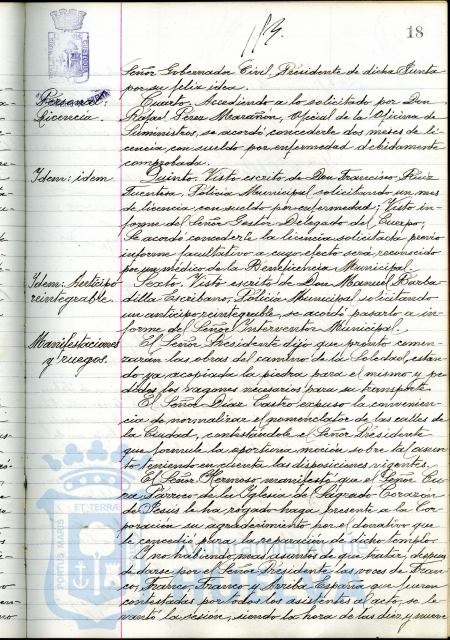 18
Señor Gobernador Civil, Presidente de dicha Junta
por su feliz idea.
Personal:
Licencia.
Cuarto. Accediendo a lo solicitado por Don
Rafael Pérez Marañón, Oficial de la Oficina de
Suministros, se acordó concederle dos meses de li-
cencia con sueldo por enfermedad debidamente
comprobada.
Idem: idem
Quinto. Visto escrito de Don Francisco Ruiz
Fuentes, Policía Municipal solicitando un mes
de licencia con sueldo por enfermedad; Visto in-
forme del Señor Gestor Delegado del Cuerpo,
Se acordó concederle la licencia solicitada previo
informe facultativo a cuyo efecto será reconocido
por un médico de la Beneficencia Municipal.
Idem: Anticipo
reintegrable
Sexto. Visto escrito de Don Manuel Barba-
dilla Escribano, Policía Municipal solicitando
un anticipo reintegrable, se acordó pasarlo a in-
forme del Señor Interventor Municipal.
Manifestaciones
y ruegos.
El Señor Presidente dijo que pronto comen-
zarán las obras del camino de la Soledad, están-
do ya acopiada la piedra para el mismo y pe-
didos los vagones necesarios para su transporte
El Señor Díaz Castro expuso la convenien-
cia de normalizar el nomenclator de las calles de
la Ciudad, contestándole el Señor Presidente
que formule la oportuna moción sobre la asunto
teniendo en cuenta las disposiciones vigentes.
El Señor Hermoso manifestó que el Señor Cu-
ra Párroco de la Iglesia del Sagrado Corazón
de Jesús le ha rogado haga presente a la Cor-
poración su agradecimiento por el donativo que
le concedió para la reparación de dicho templo.
Y no habiendo más asuntos de que tratar, después
de darse por el Señor Presidente las voces de Fran-
co, Franco, Franco y Arriba España que fueron
contestadas por todos los asistentes al acto, se le-
vantó la sesión, siendo la hora de las diez y nueve
PORTUS MARIS ET TERRAE